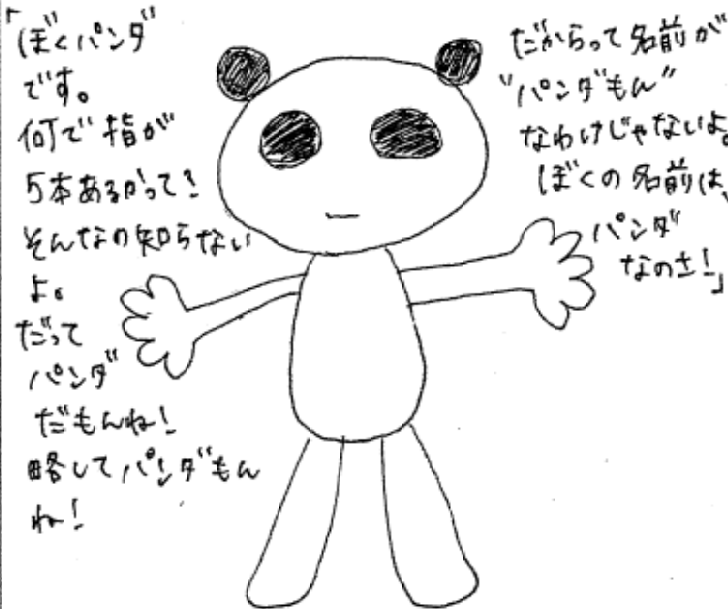 「ぼくパンダ
です。
何で指が
5本あるかって?
そんなの知らない
よ。
だって
パンダ
だもんね!
略してパンダもん
ね!
だからって名前が
"パンダもん"
なわけじゃないよ。
ぼくの名前は、
パンダ
なのさ!」